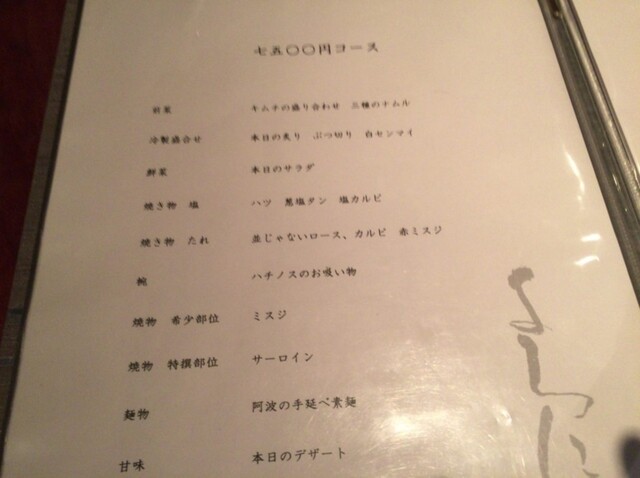 七五〇〇円コース
前菜 キムチの盛り合わせ 三種のナムル
冷製盛合せ 本日の炙り ぶつ切り 白センマイ
鮮菜 本日のサラダ
焼き物 塩 ハツ 葱塩タン 塩カルビ
焼き物 たれ 並じゃないロース、カルビ 赤ミスジ
椀 ハチノスのお吸い物
焼物 希少部位 ミスジ
焼物 特撰部位 サーロイン
麺物 阿波の手延べ素麺
甘味 本日のデザート
よしに